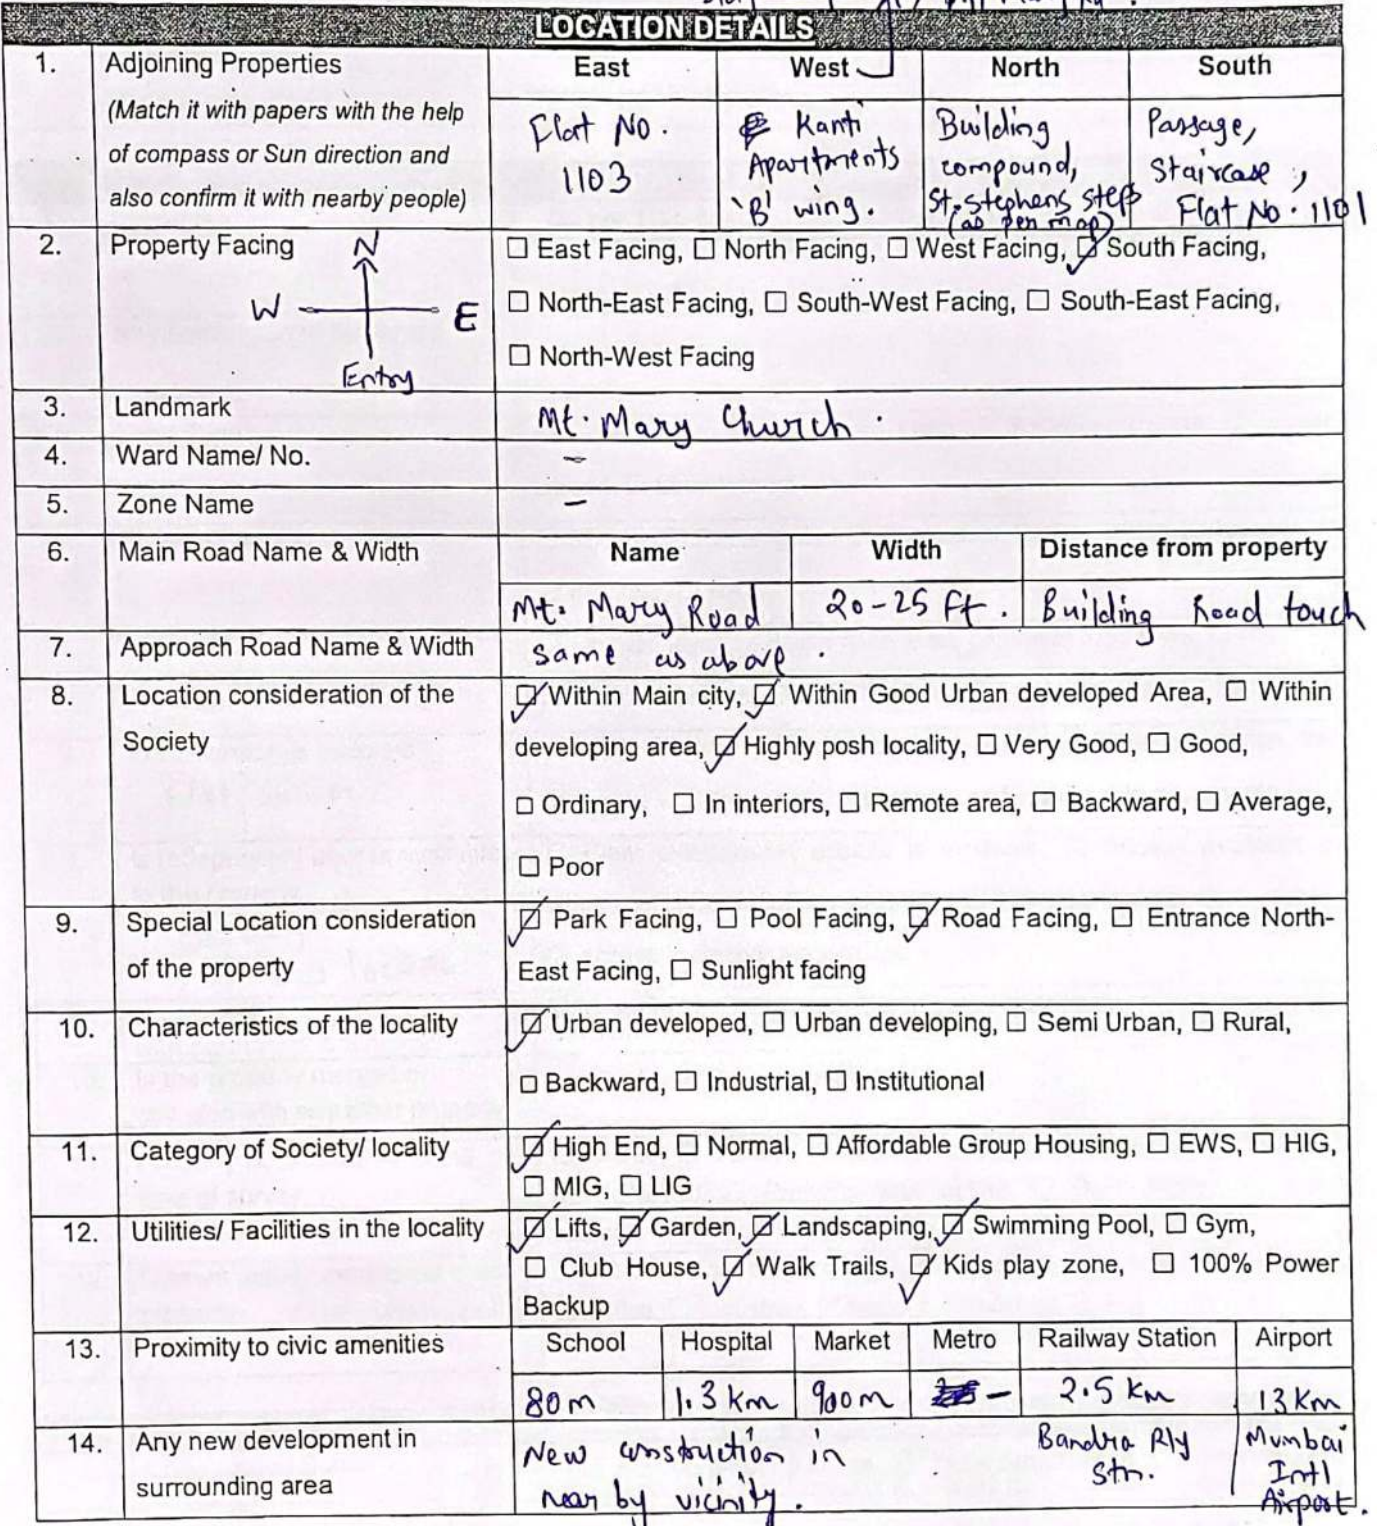 LOCATION DETAILS
1. Adjoining Properties
(Match it with papers with the help
of compass or Sun direction and
also confirm it with nearby people)
East West North South
Flat No.
1103
Kanti
Apartments
'B' wing.
Building
compound,
St. stephens steps
(as per map)
Passage,
Staircase,
Flat No. 1101
2. Property Facing
N
W E
Entry
☐ East Facing, ☐ North Facing, ☐ West Facing, ☑ South Facing,
☐ North-East Facing, ☐ South-West Facing, ☐ South-East Facing,
☐ North-West Facing
3. Landmark Mt. Mary Church.
4. Ward Name/ No. –
5. Zone Name –
6. Main Road Name & Width Name Width Distance from property
Mt. Mary Road 20-25 Ft. Building Road touch
7. Approach Road Name & Width same as above.
8. Location consideration of the
Society
☑ Within Main city, ☑ Within Good Urban developed Area, ☐ Within
developing area, ☑ Highly posh locality, ☐ Very Good, ☐ Good,
☐ Ordinary, ☐ In interiors, ☐ Remote area, ☐ Backward, ☐ Average,
☐ Poor
9. Special Location consideration
of the property
☑ Park Facing, ☐ Pool Facing, ☑ Road Facing, ☐ Entrance North-
East Facing, ☐ Sunlight facing
10. Characteristics of the locality
☑ Urban developed, ☐ Urban developing, ☐ Semi Urban, ☐ Rural,
☐ Backward, ☐ Industrial, ☐ Institutional
11. Category of Society/ locality
☑ High End, ☐ Normal, ☐ Affordable Group Housing, ☐ EWS, ☐ HIG,
☐ MIG, ☐ LIG
12. Utilities/ Facilities in the locality
☑ Lifts, ☑ Garden, ☑ Landscaping, ☑ Swimming Pool, ☐ Gym,
☐ Club House, ☑ Walk Trails, ☑ Kids play zone, ☐ 100% Power
Backup
13. Proximity to civic amenities
School Hospital Market Metro Railway Station Airport
80m 1.3 km 900m – 2.5 km 13 km
Bandra Rly
Stn.
Mumbai
Intl
Airport.
14. Any new development in
surrounding area
New construction in
near by vicinity.